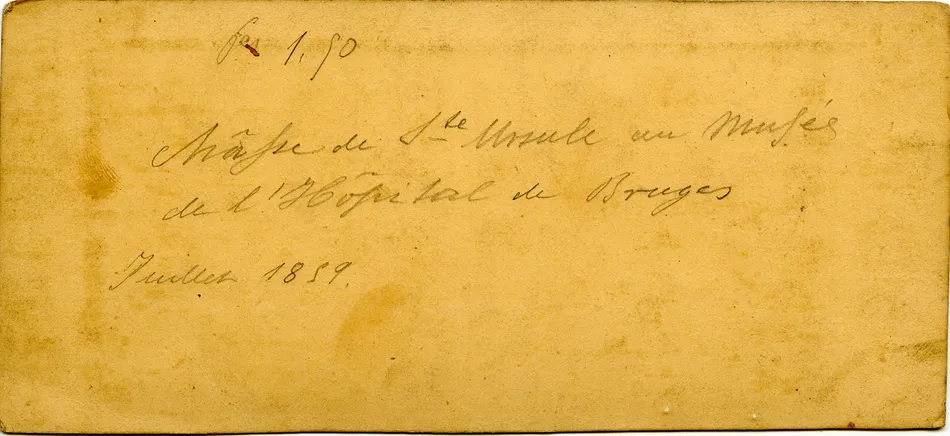 fcs 1,50
Châsse de Ste Ursule au Musée
de l'Hôpital de Bruges
Juillet 1859.